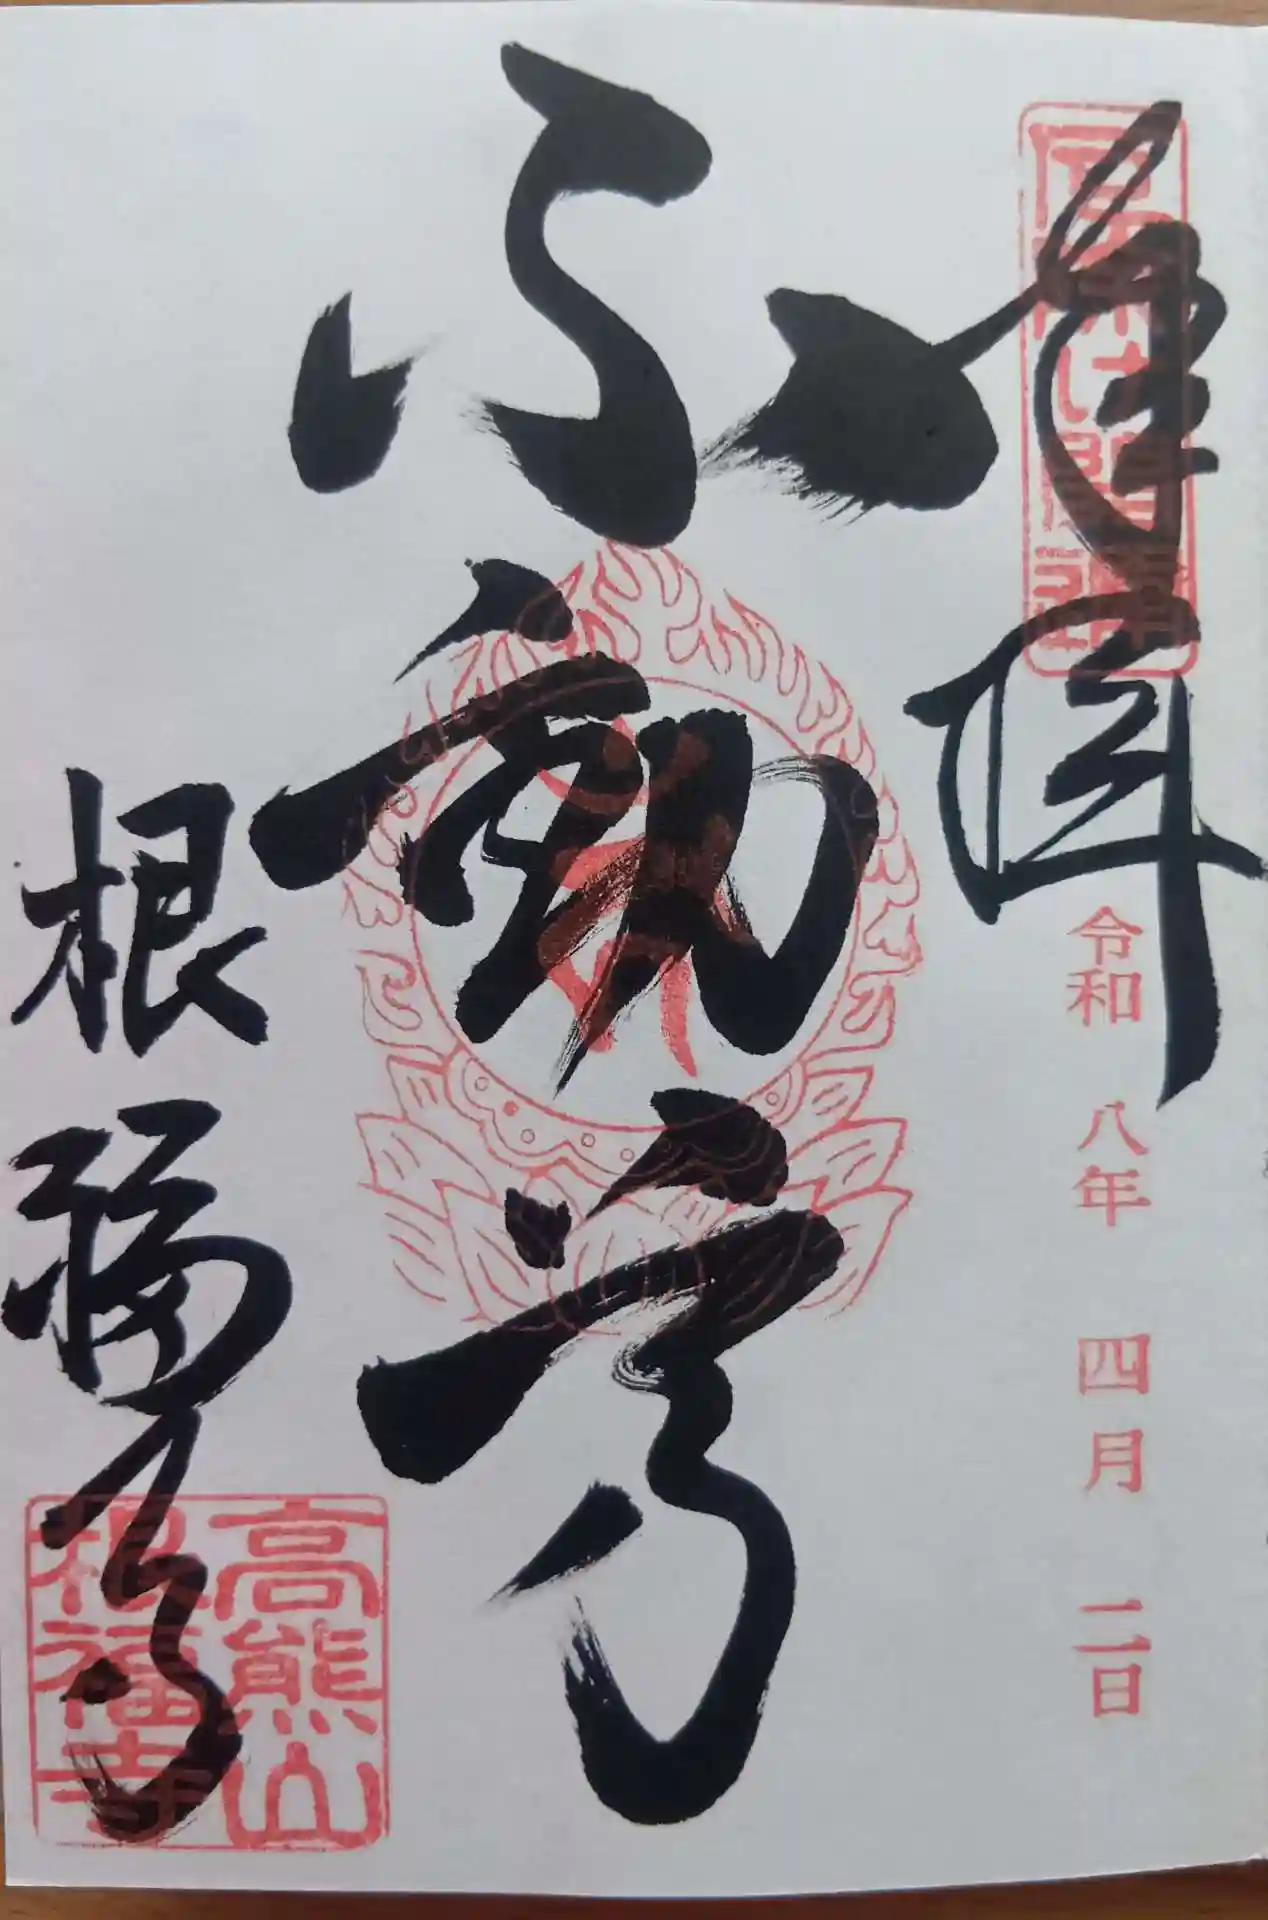 奉拝
令和 八年 四月 二日
不動尊
根福寺
高熊山
根福寺